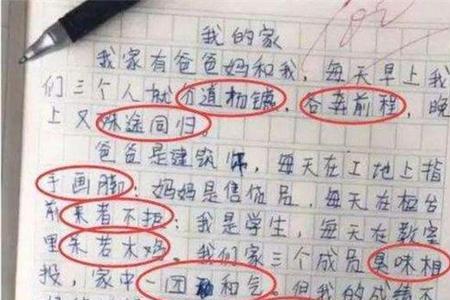 我的家
我家有爸爸妈和我，每天早上我
们三个人就分道扬镳，各奔前程，晚
上又殊途同归。
爸爸是建筑师，每天在工地上指
手画脚；妈妈是售货员，每天在柜台
前来者不拒；我是学生，每天在教室
里呆若木鸡。我们家三个成员臭味相
投，家中一团和气。但我的成绩不